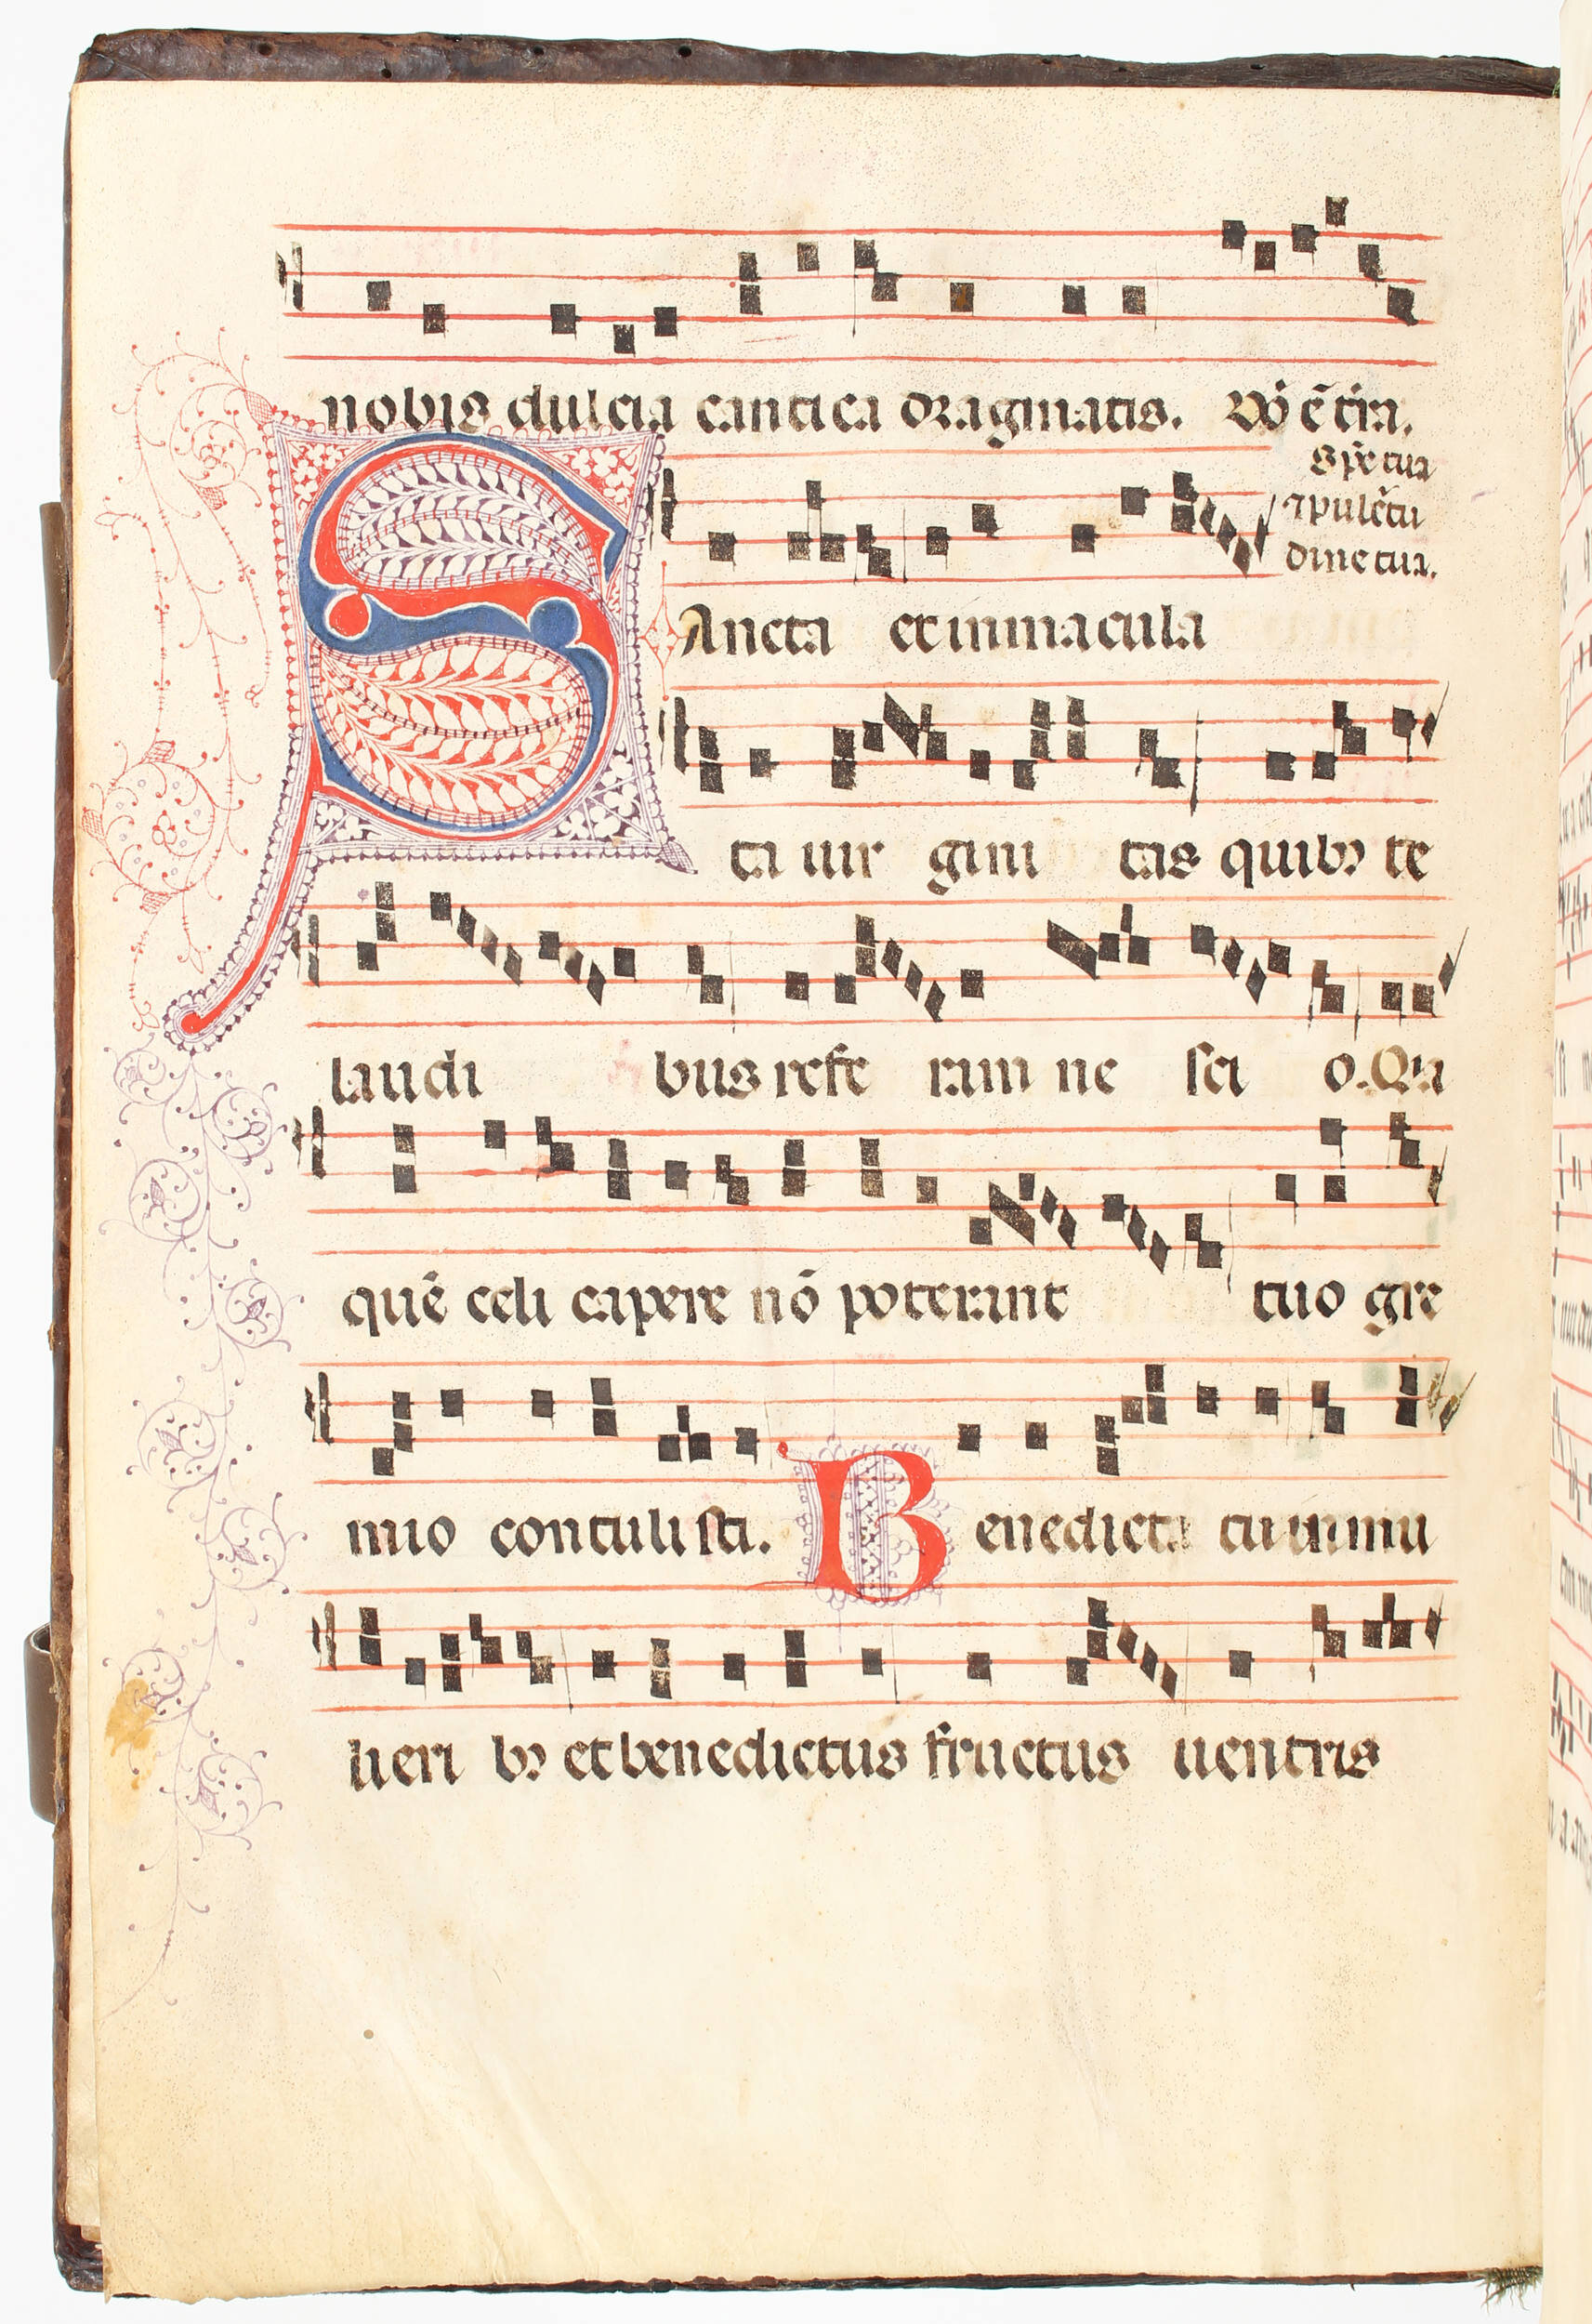 nobis dulcia cantica dragmatis. 
Sp̄e tua
⁊ pulc̄tu
dine tua.
SAncta et inmacula
ta uir gini tas quibꝫ te
laudi bus refe ram ne sci o. Q'a
quē celi capere nō poterant tuo gre
mio contuli sti. Benedicta tu in mu
lieri bꝫ et benedictus fructus uentris